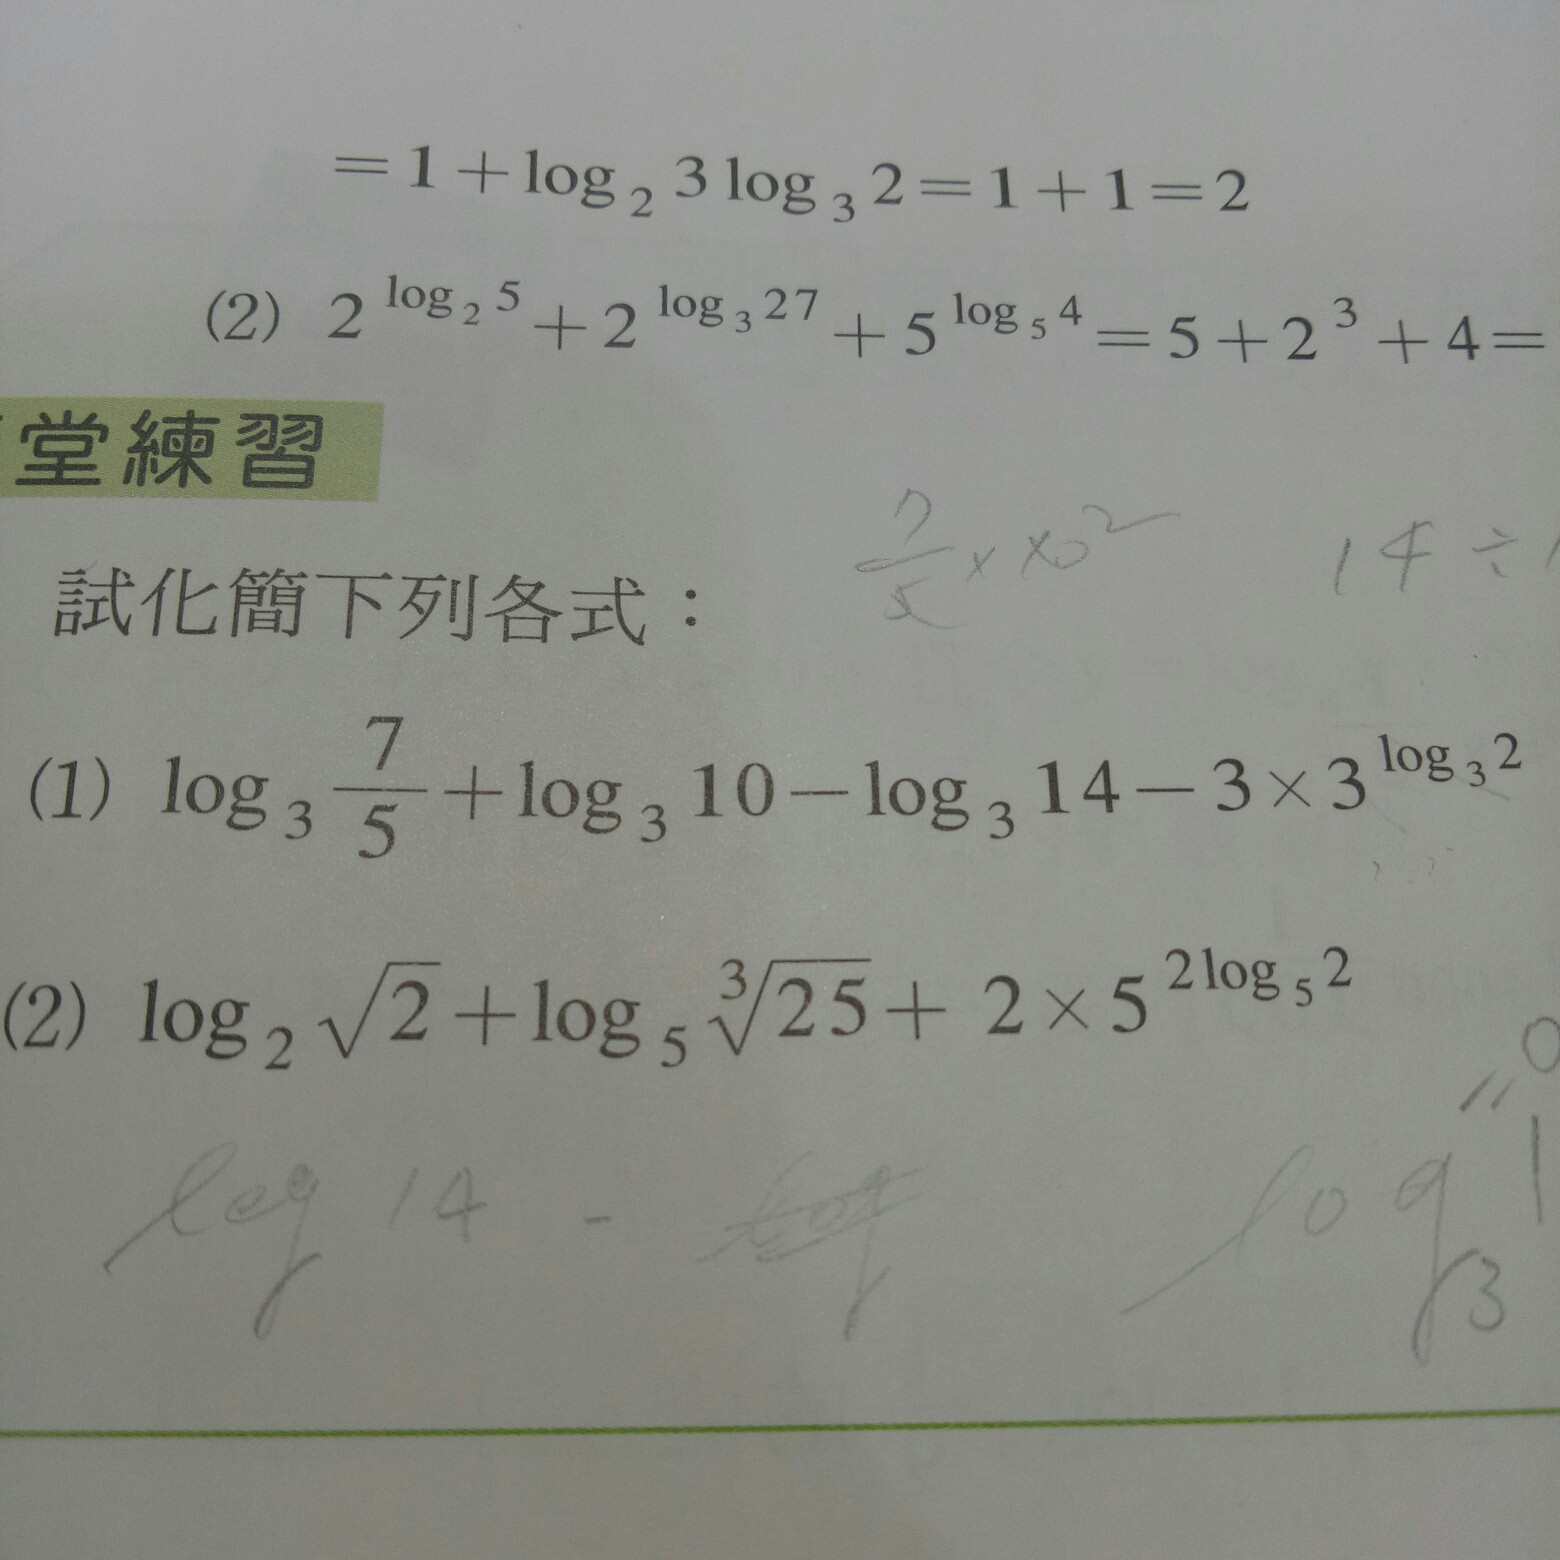 = 1 + log₂ 3 log₃ 2 = 1 + 1 = 2
(2) 2^(log₂ 5) + 2^(log₃ 27) + 5^(log₅ 4) = 5 + 2³ + 4 =
堂練習
7/5 × 10² 14 ÷ 1
試化簡下列各式：
(1) log₃ 7/5 + log₃ 10 − log₃ 14 − 3 × 3^(log₃ 2)
(2) log₂ √2 + log₅ ∛25 + 2 × 5^(2log₅ 2)
log 14 - log₃ 1